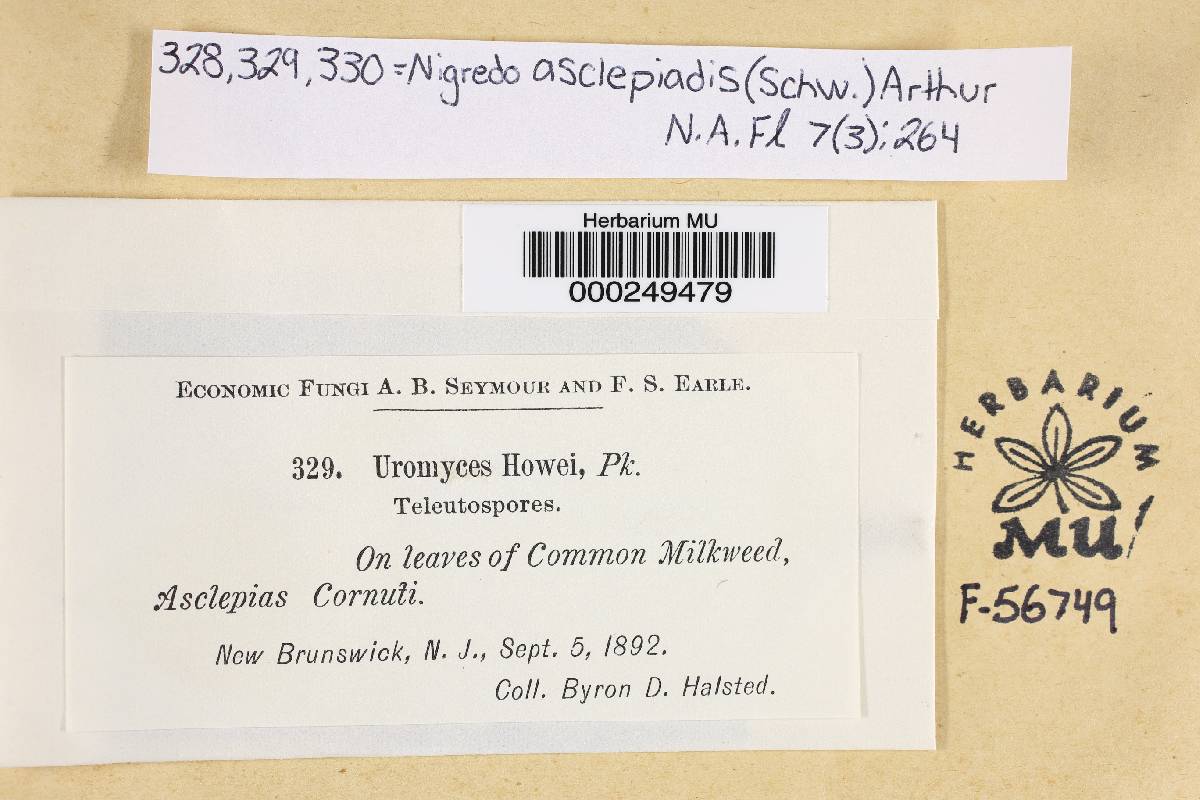 328,329,330 = Nigredo asclepiadis (Schw.) Arthur
N.A.Fl 7(3):264
Herbarium MU
000249479
Economic Fungi A. B. Seymour and F. S. Earle.
329. Uromyces Howei, Pk.
Teleutospores.
On leaves of Common Milkweed,
Asclepias Cornuti.
New Brunswick, N. J., Sept. 5, 1892.
Coll. Byron D. Halsted.
HERBARIUM
MU
F-56749